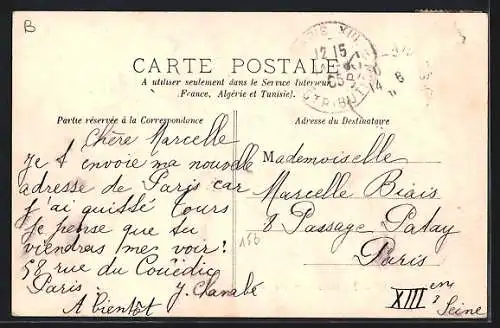 B
CARTE POSTALE
A utiliser seulement dans le Service Intérieur
(France, Algérie et Tunisie).
Partie réservée à la Correspondance
Chère Marcelle
Je t envoie ma nouvelle
adresse de Paris car
j'ai quitté Tours
Je pense que tu
viendras me voir !
58 rue du Couëdic
Paris
A bientôt
Adresse du Destinataire
Mademoiselle
Marcelle Biais
8 Passage Patay
Paris
XIII em
Seine
156
XIII
12 15
DISTRIBUTION